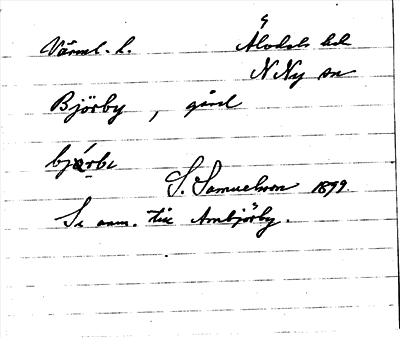 Värml. l. Älvdals hd
N Ny sn
Björby, gård
bjørbi
S. Samuelsson 1899
Se anm. till Ambjörby.